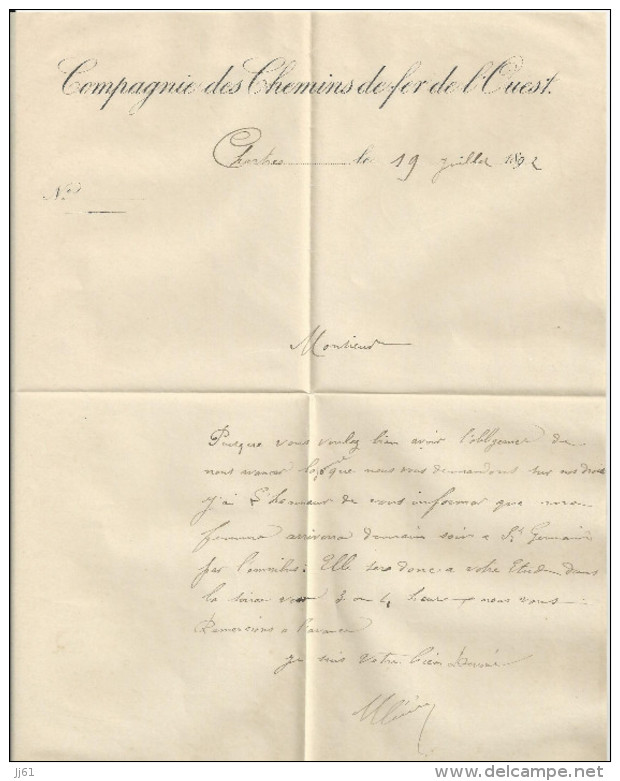 Compagnie des Chemins de fer de l'Ouest.
Chartres le 19 juillet 1892
N°
Monsieur
Puisque vous voulez bien avoir l'obligence de
nous avancer ce que nous vous demandons sur nos droits
J'ai L'honneur de vous informer que ma
femme arrivera demain soir a St Germain
par l'omnibus. Elle sera donc a votre Etude dans
la soirée vers 3 ou 4 heures nous vous
Remercions a l'avance
je suis votre bien Dévoué
jj61
www.delcampe.net